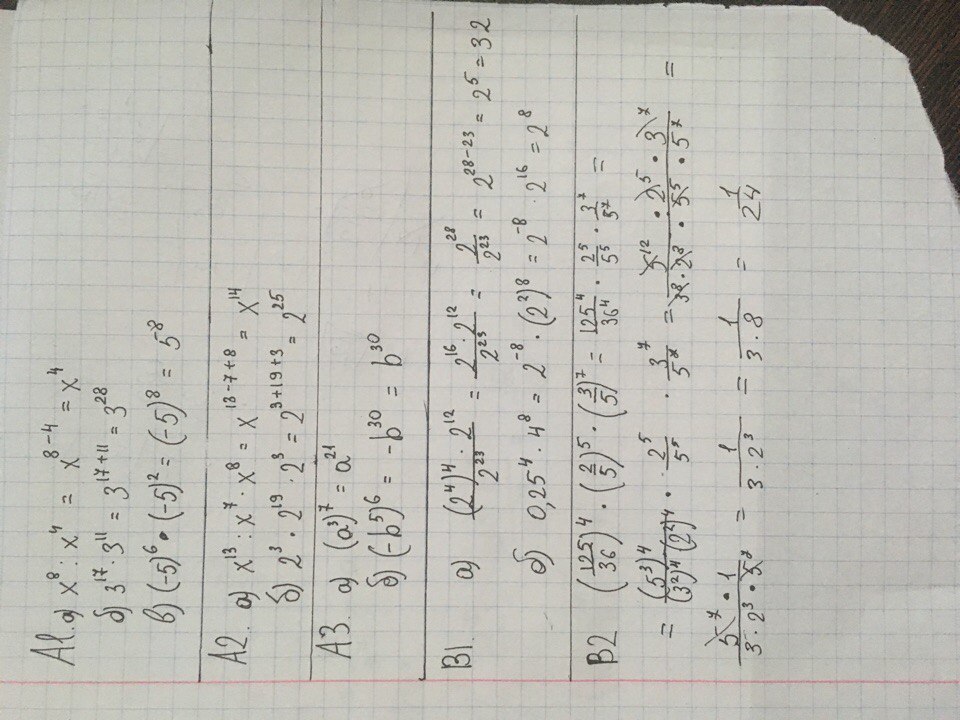 A1. а) x⁸ : x⁴ = x⁸⁻⁴ = x⁴
б) 3¹⁷ · 3¹¹ = 3¹⁷⁺¹¹ = 3²⁸
в) (-5)⁶ · (-5)² = (-5)⁸ = 5⁻⁸
A2. а) x¹³ : x⁷ · x⁸ = x¹³⁻⁷⁺⁸ = x¹⁴
б) 2³ · 2¹⁹ · 2³ = 2³⁺¹⁹⁺³ = 2²⁵
A3. а) (a³)⁷ = a²¹
б) (-b⁵)⁶ = -b³⁰ = b³⁰
B1. а) (2⁴)⁴ · 2¹² / 2²³ = 2¹⁶ · 2¹² / 2²³ = 2²⁸ / 2²³ = 2²⁸⁻²³ = 2⁵ = 32
б) 0,25⁴ · 4⁸ = 2⁻⁸ · (2²)⁸ = 2⁻⁸ · 2¹⁶ = 2⁸
B2 (125/36)⁴ · (2/5)⁵ · (3/5)⁷ = 125⁴/36⁴ · 2⁵/5⁵ · 3⁷/5⁷ =
= (5³)⁴ / (3²)⁴ · (2²)⁴ · 2⁵/5⁵ · 3⁷/5⁷ = 5¹² · 2⁵ · 3⁷ / 3⁸ · 2⁸ · 5⁵ · 5⁷ =
5⁷ · 1 / 3 · 2³ · 5⁷ = 1 / 3 · 2³ = 1 / 3 · 8 = 1/24